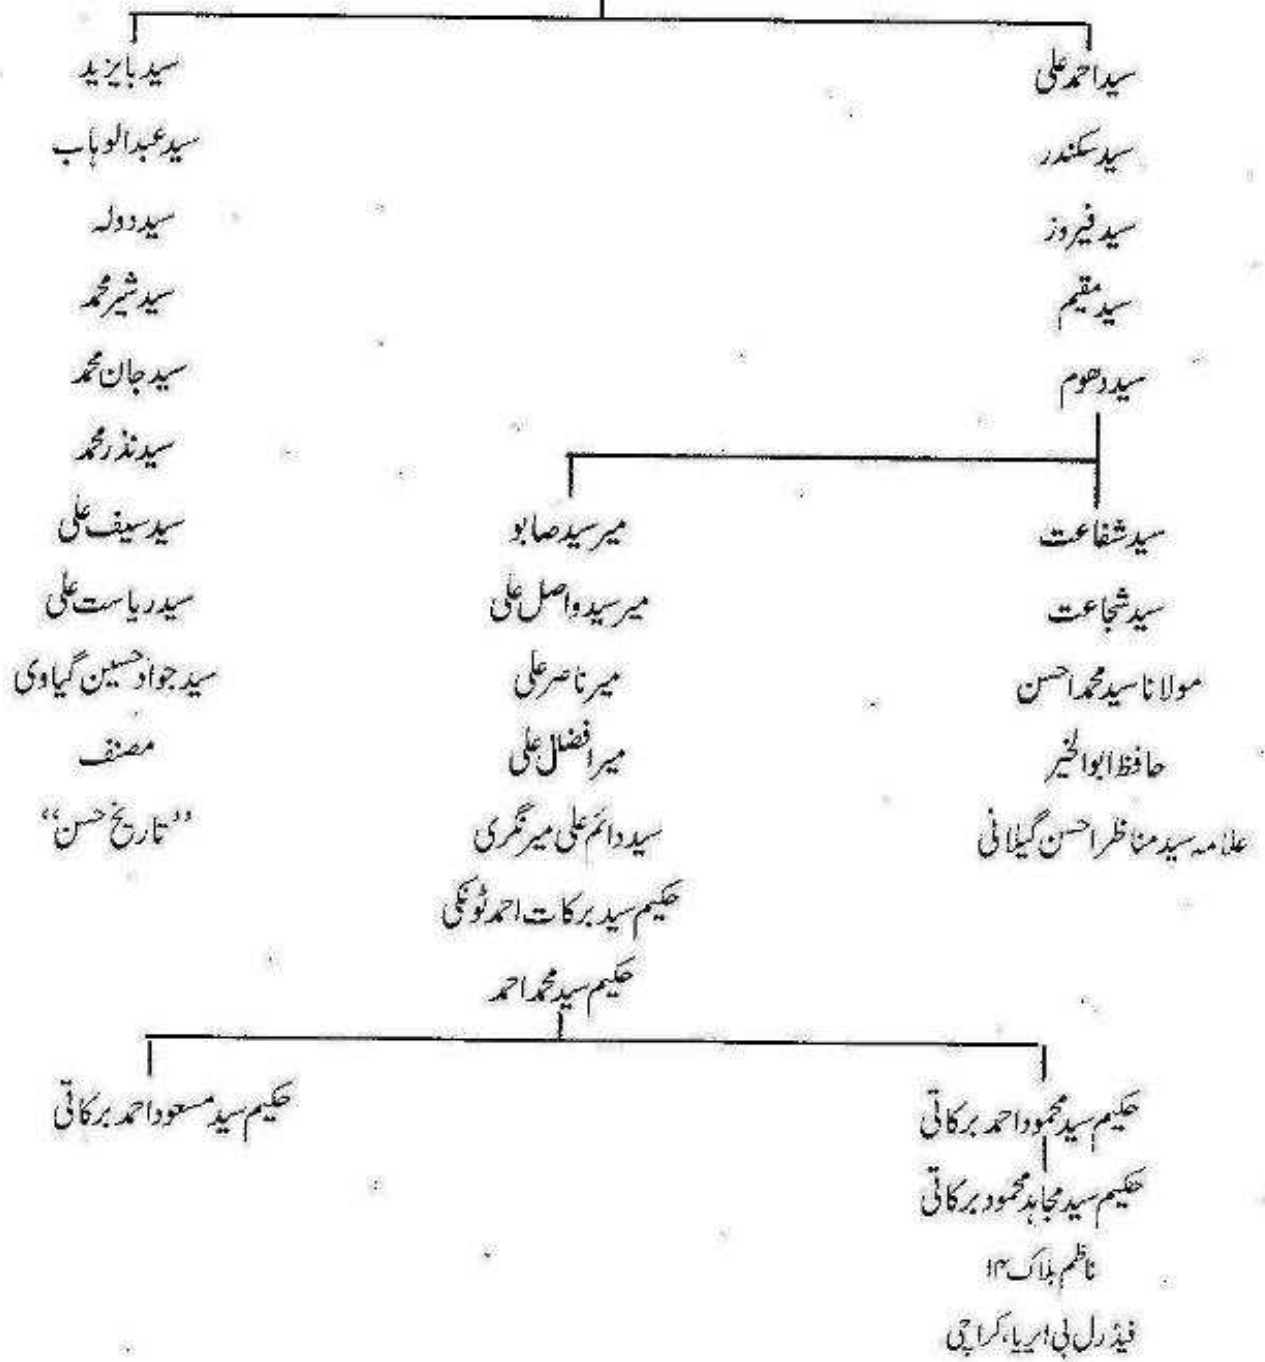 سید احمد علی
سید سکندر
سید فیروز
سید مقیم
سید دھوم
سید شفاعت
سید شجاعت
مولانا سید محمد احسن
حافظ ابوالخیر
علامہ سید مناظر احسن گیلانی
میر سید صابو
میر سید واصل علی
میر ناصر علی
میر افضل علی
سید دائم علی میر نگری
حکیم سید برکات احمد ٹونکی
حکیم سید محمد احمد
حکیم سید محمود احمد برکاتی
حکیم سید مجاہد محمود برکاتی
ناظم بلاک ۱۴
فیڈرل بی ایریا، کراچی
حکیم سید مسعود احمد برکاتی
سید بایزید
سید عبدالوہاب
سید دولہ
سید شیر محمد
سید جان محمد
سید نذر محمد
سید سیف علی
سید ریاست علی
سید جواد حسین گیاوی
مصنف
’’تاریخ حسن‘‘